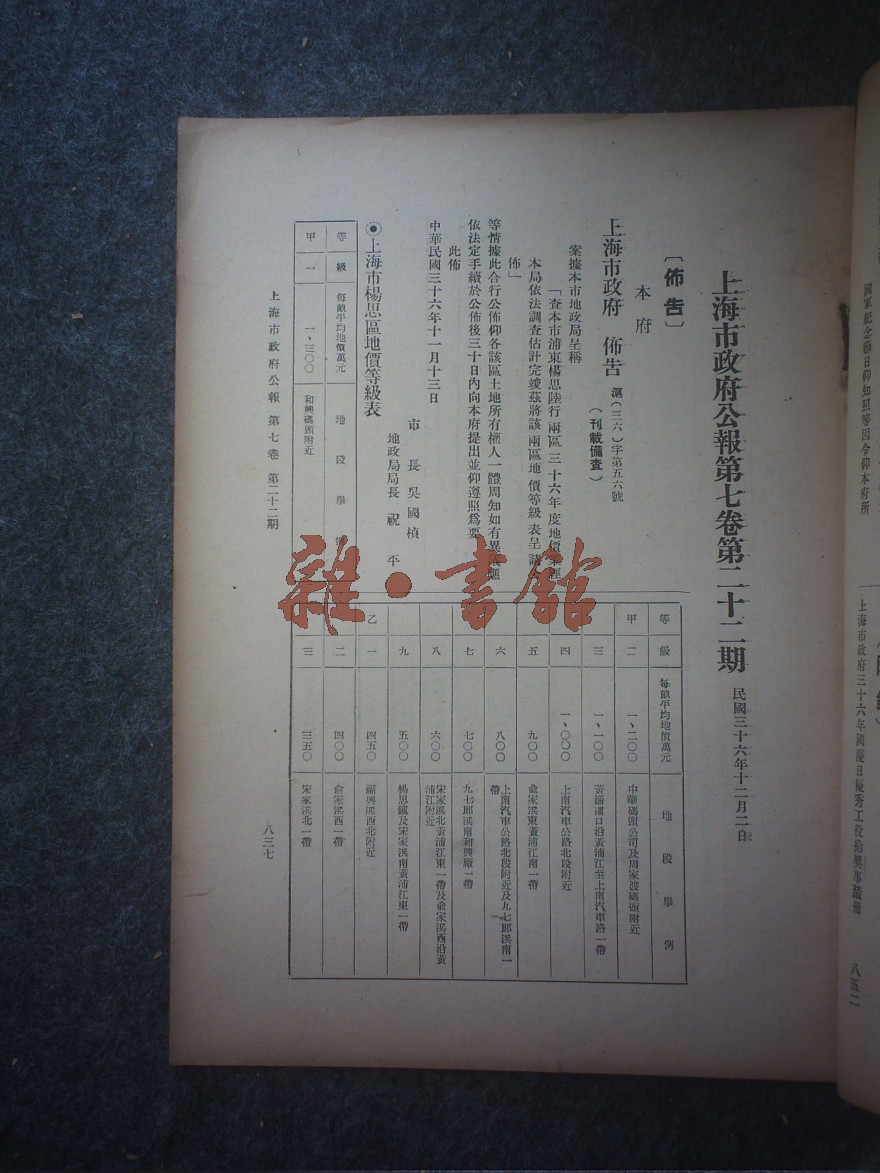 上海市政府公報第七卷第二十二期
民國三十六年十二月二日
〔佈告〕
本府
上海市政府 佈告 滬(三六)字第五六號
(刊載備查)
案據本市地政局呈稱
「查本市浦東楊思陸行兩區三十六年度地價業經
本局依法調查估計完竣茲將該兩區地價等級表呈請
佈」
等情據此合行公佈仰各該區土地所有權人一體周知如有異
依法定手續於公佈後三十日內向本府提出並仰遵照為要
此佈
中華民國三十六年十一月十三日
市長 吳國楨
地政局局長 祝平
◉上海市楊思區地價等級表
等級 每畝平均地價萬元 地段舉
甲 一 一、三〇〇 和興碼頭附近
等級 每畝平均地價萬元 地段舉例
甲 二 一、二〇〇 中華碼頭公司及周家渡碼頭附近
三 一、一〇〇 黃浦灘口沿黃浦江至上南汽車路一帶
四 一、〇〇〇 上南汽車公路北段附近
五 九〇〇 俞家浜東黃浦江南一帶
六 八〇〇 上南汽車公路北段附近及九七郎浜南一
帶
七 七〇〇 九七郎浜南和興廠一帶
八 六〇〇 宋家浜北黃浦江東一帶及俞家浜西沿黃
浦江附近
九 五〇〇 楊思鎮及宋家浜南黃浦江東一帶
乙 一 四五〇 顧與浜西北附近
二 四〇〇 俞家浜西一帶
三 三五〇 宋家浜北一帶
上海市政府公報 第七卷 第二十二期
八三七
國軍紀念節日仰知照等因令仰本府所
上海市政府三十六年國慶日優秀工役給獎事蹟冊
八五二
雜·書館